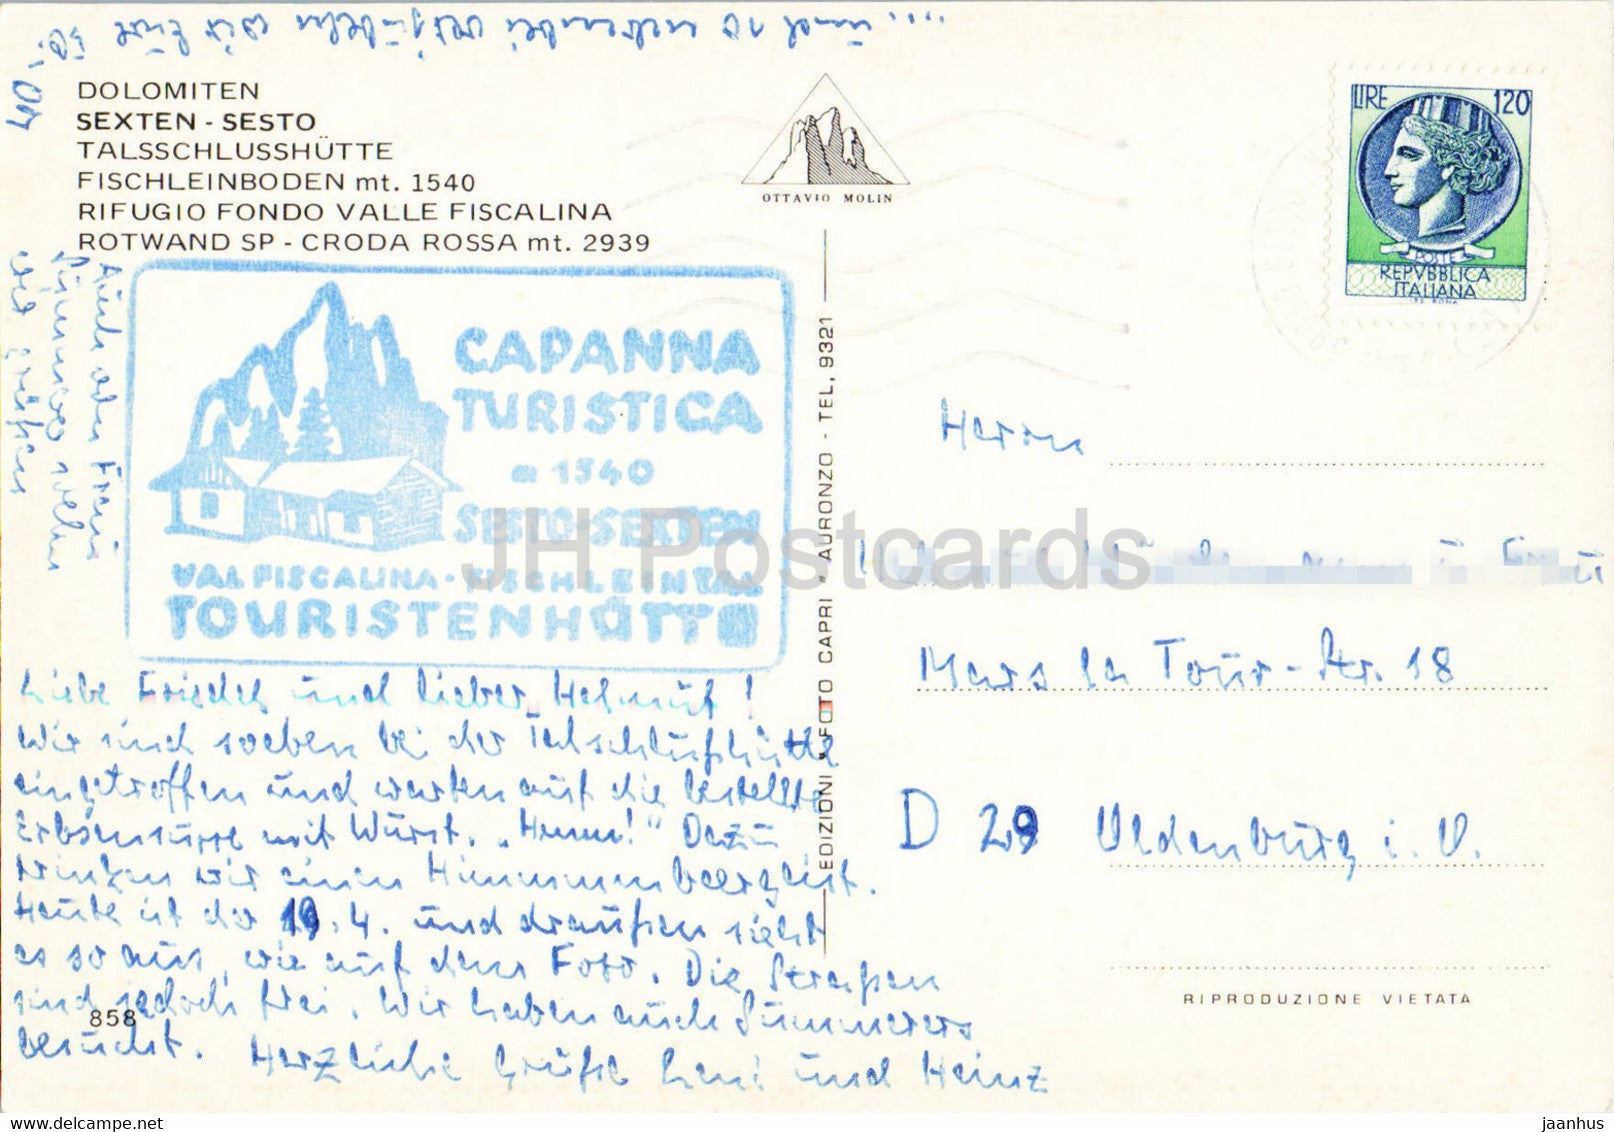 .... und so nebenbei verjubeln wir Eure
50,- DM
DOLOMITEN
SEXTEN - SESTO
TALSSCHLUSSHÜTTE
FISCHLEINBODEN mt. 1540
RIFUGIO FONDO VALLE FISCALINA
ROTWAND SP - CRODA ROSSA mt. 2939
OTTAVIO MOLIN
LIRE 120
POSTE
REPVBBLICA
ITALIANA
Auch an Frau
Summerer sollen
wir grüßen
CAPANNA
TURISTICA
m 1540
SESTO-SEXTEN
VAL FISCALINA - FISCHLEINTAL
TOURISTENHÜTTE
EDIZIONI FOTO CAPRI - AURONZO - TEL. 9321
JH Postcards
Liebe Friedel und lieber Helmut!
Wir sind soeben bei der Talschlußhütte
eingetroffen und warten auf die bestellte
Erbsensuppe mit Wurst. „Hmm!" Dazu
trinken wir einen Himmmmbeergeist.
Heute ist der 19.4. und draußen sieht
es so aus, wie auf dem Foto. Die Straßen
sind jedoch frei. Wir haben auch Summerers
besucht. Herzliche Grüße Leni und Heinz
858
Herrn
Mars la Tour-Str. 18
D 29 Oldenburg i. O.
RIPRODUZIONE VIETATA
www.delcampe.net
jaanhus